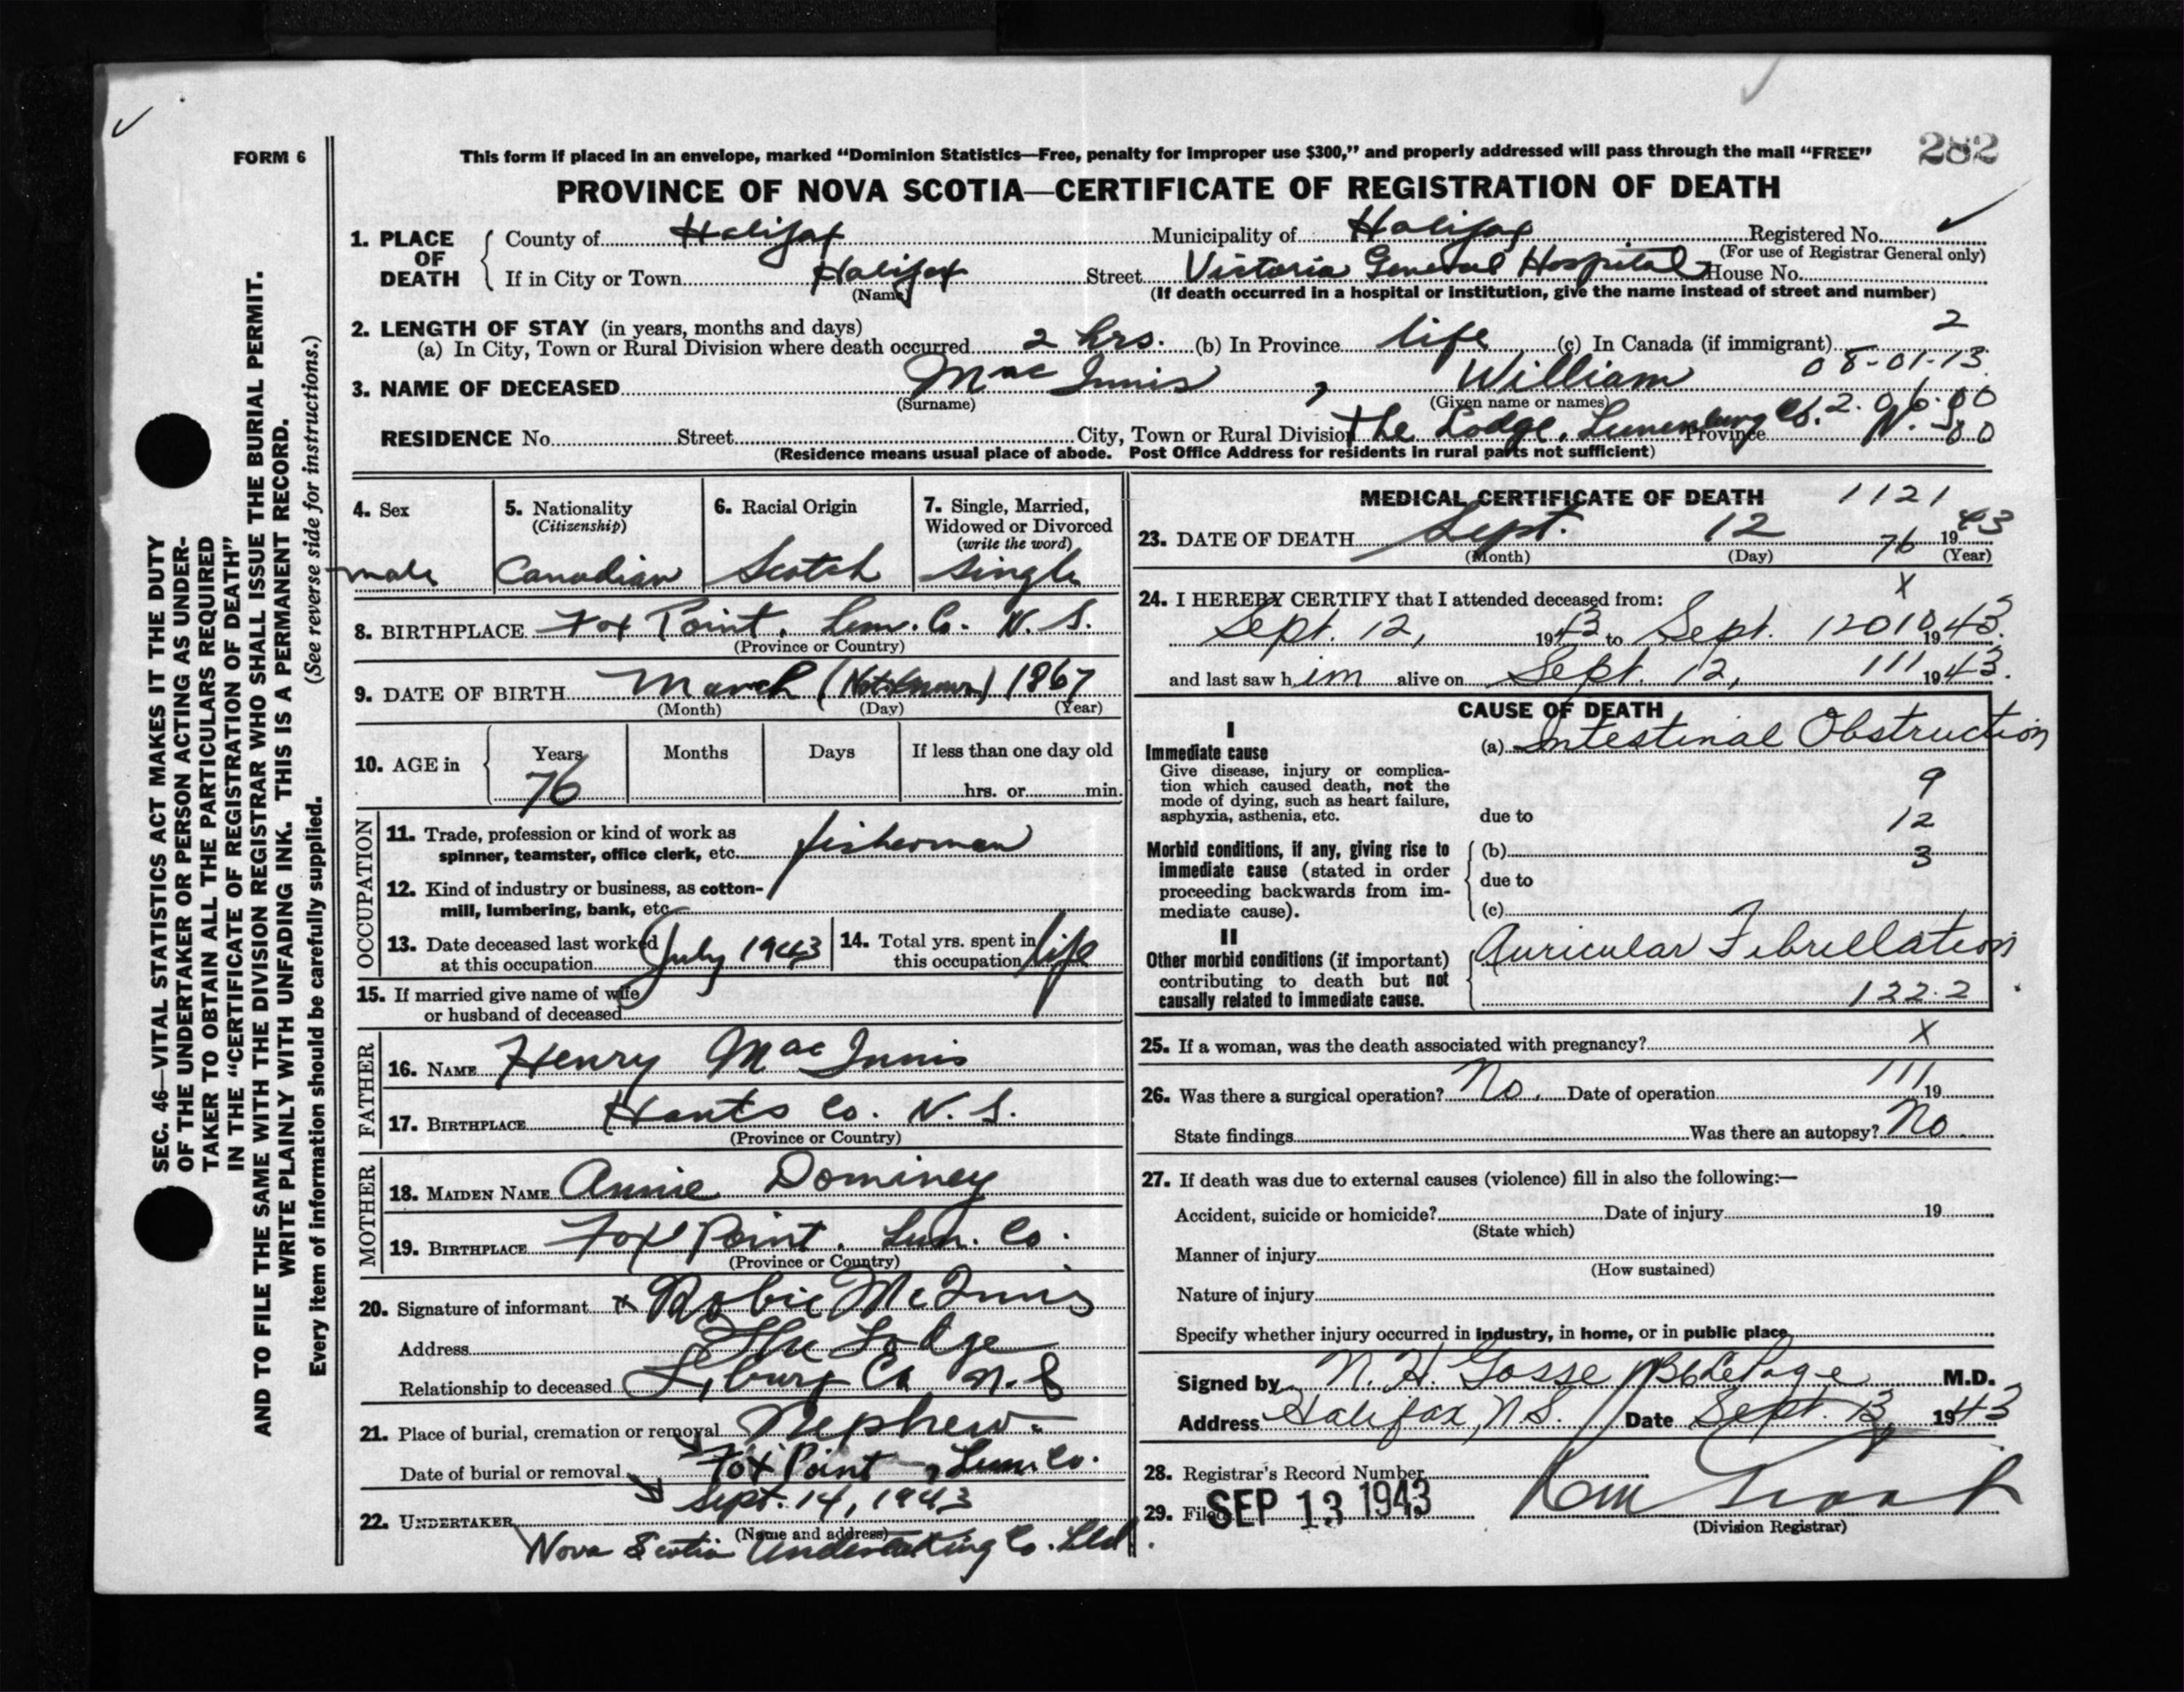 FORM 6
This form if placed in an envelope, marked “Dominion Statistics—Free, penalty for improper use $300,” and properly addressed will pass through the mail “FREE”
282
PROVINCE OF NOVA SCOTIA—CERTIFICATE OF REGISTRATION OF DEATH
SEC. 46—VITAL STATISTICS ACT MAKES IT THE DUTY
OF THE UNDERTAKER OR PERSON ACTING AS UNDER-
TAKER TO OBTAIN ALL THE PARTICULARS REQUIRED
IN THE “CERTIFICATE OF REGISTRATION OF DEATH”
AND TO FILE THE SAME WITH THE DIVISION REGISTRAR WHO SHALL ISSUE THE BURIAL PERMIT.
WRITE PLAINLY WITH UNFADING INK. THIS IS A PERMANENT RECORD.
Every item of information should be carefully supplied. (See reverse side for instructions.)
1. PLACE OF DEATH
County of Halifax Municipality of Halifax Registered No.
(For use of Registrar General only)
If in City or Town Halifax Street Victoria General Hospital House No.
(Name) (If death occurred in a hospital or institution, give the name instead of street and number)
2. LENGTH OF STAY (in years, months and days) 2
(a) In City, Town or Rural Division where death occurred 2 hrs. (b) In Province life (c) In Canada (if immigrant)
08-01-13
3. NAME OF DECEASED MacInnis, William
(Surname) (Given name or names)
2.06.00
RESIDENCE No. Street City, Town or Rural Division The Lodge, Lunenburg Co. Province N.S.
00
(Residence means usual place of abode. Post Office Address for residents in rural parts not sufficient)
4. Sex
male
5. Nationality
(Citizenship)
Canadian
6. Racial Origin
Scotch
7. Single, Married,
Widowed or Divorced
(write the word)
single
8. BIRTHPLACE Fox Point, Lun. Co. N. S.
(Province or Country)
9. DATE OF BIRTH March (Not Known) 1867
(Month) (Day) (Year)
10. AGE in
Years Months Days If less than one day old
76 hrs. or min.
OCCUPATION
11. Trade, profession or kind of work as
spinner, teamster, office clerk, etc. fisherman
12. Kind of industry or business, as cotton-
mill, lumbering, bank, etc.
13. Date deceased last worked
at this occupation July 1943
14. Total yrs. spent in
this occupation life
15. If married give name of wife
or husband of deceased
FATHER
16. NAME Henry MacInnis
17. BIRTHPLACE Hants Co. N. S.
(Province or Country)
MOTHER
18. MAIDEN NAME Annie Dominey
19. BIRTHPLACE Fox Point, Lun. Co.
(Province or Country)
20. Signature of informant x Robie McInnis
Address The Lodge
Relationship to deceased L,burg Co N.S
21. Place of burial, cremation or removal Nephew
Date of burial or removal Fox Point, Lun. Co.
Sept. 14, 1943
22. UNDERTAKER
(Name and address)
Nova Scotia Undertaking Co. Ltd.
MEDICAL CERTIFICATE OF DEATH 1121
23. DATE OF DEATH Sept. 12 76 1943
(Month) (Day) (Year)
X
24. I HEREBY CERTIFY that I attended deceased from:
Sept. 12, 1943 to Sept. 12 010 1943.
and last saw him alive on Sept. 12, 111 1943.
CAUSE OF DEATH
I
Immediate cause
Give disease, injury or complica-
tion which caused death, not the
mode of dying, such as heart failure,
asphyxia, asthenia, etc.
(a) Intestinal Obstruction
9
due to
12
Morbid conditions, if any, giving rise to
immediate cause (stated in order
proceeding backwards from im-
mediate cause).
(b) 3
due to
(c)
II
Other morbid conditions (if important)
contributing to death but not
causally related to immediate cause.
Auricular Fibrillation
122.2
25. If a woman, was the death associated with pregnancy? X
26. Was there a surgical operation? No. Date of operation 111 19
State findings Was there an autopsy? No.
27. If death was due to external causes (violence) fill in also the following:—
Accident, suicide or homicide? Date of injury 19
(State which)
Manner of injury
(How sustained)
Nature of injury
Specify whether injury occurred in industry, in home, or in public place
Signed by N. H. Gosse / LePage M.D.
Address Halifax, N.S. Date Sept. 13, 1943
28. Registrar's Record Number
29. Filed SEP 13 1943
(Division Registrar)